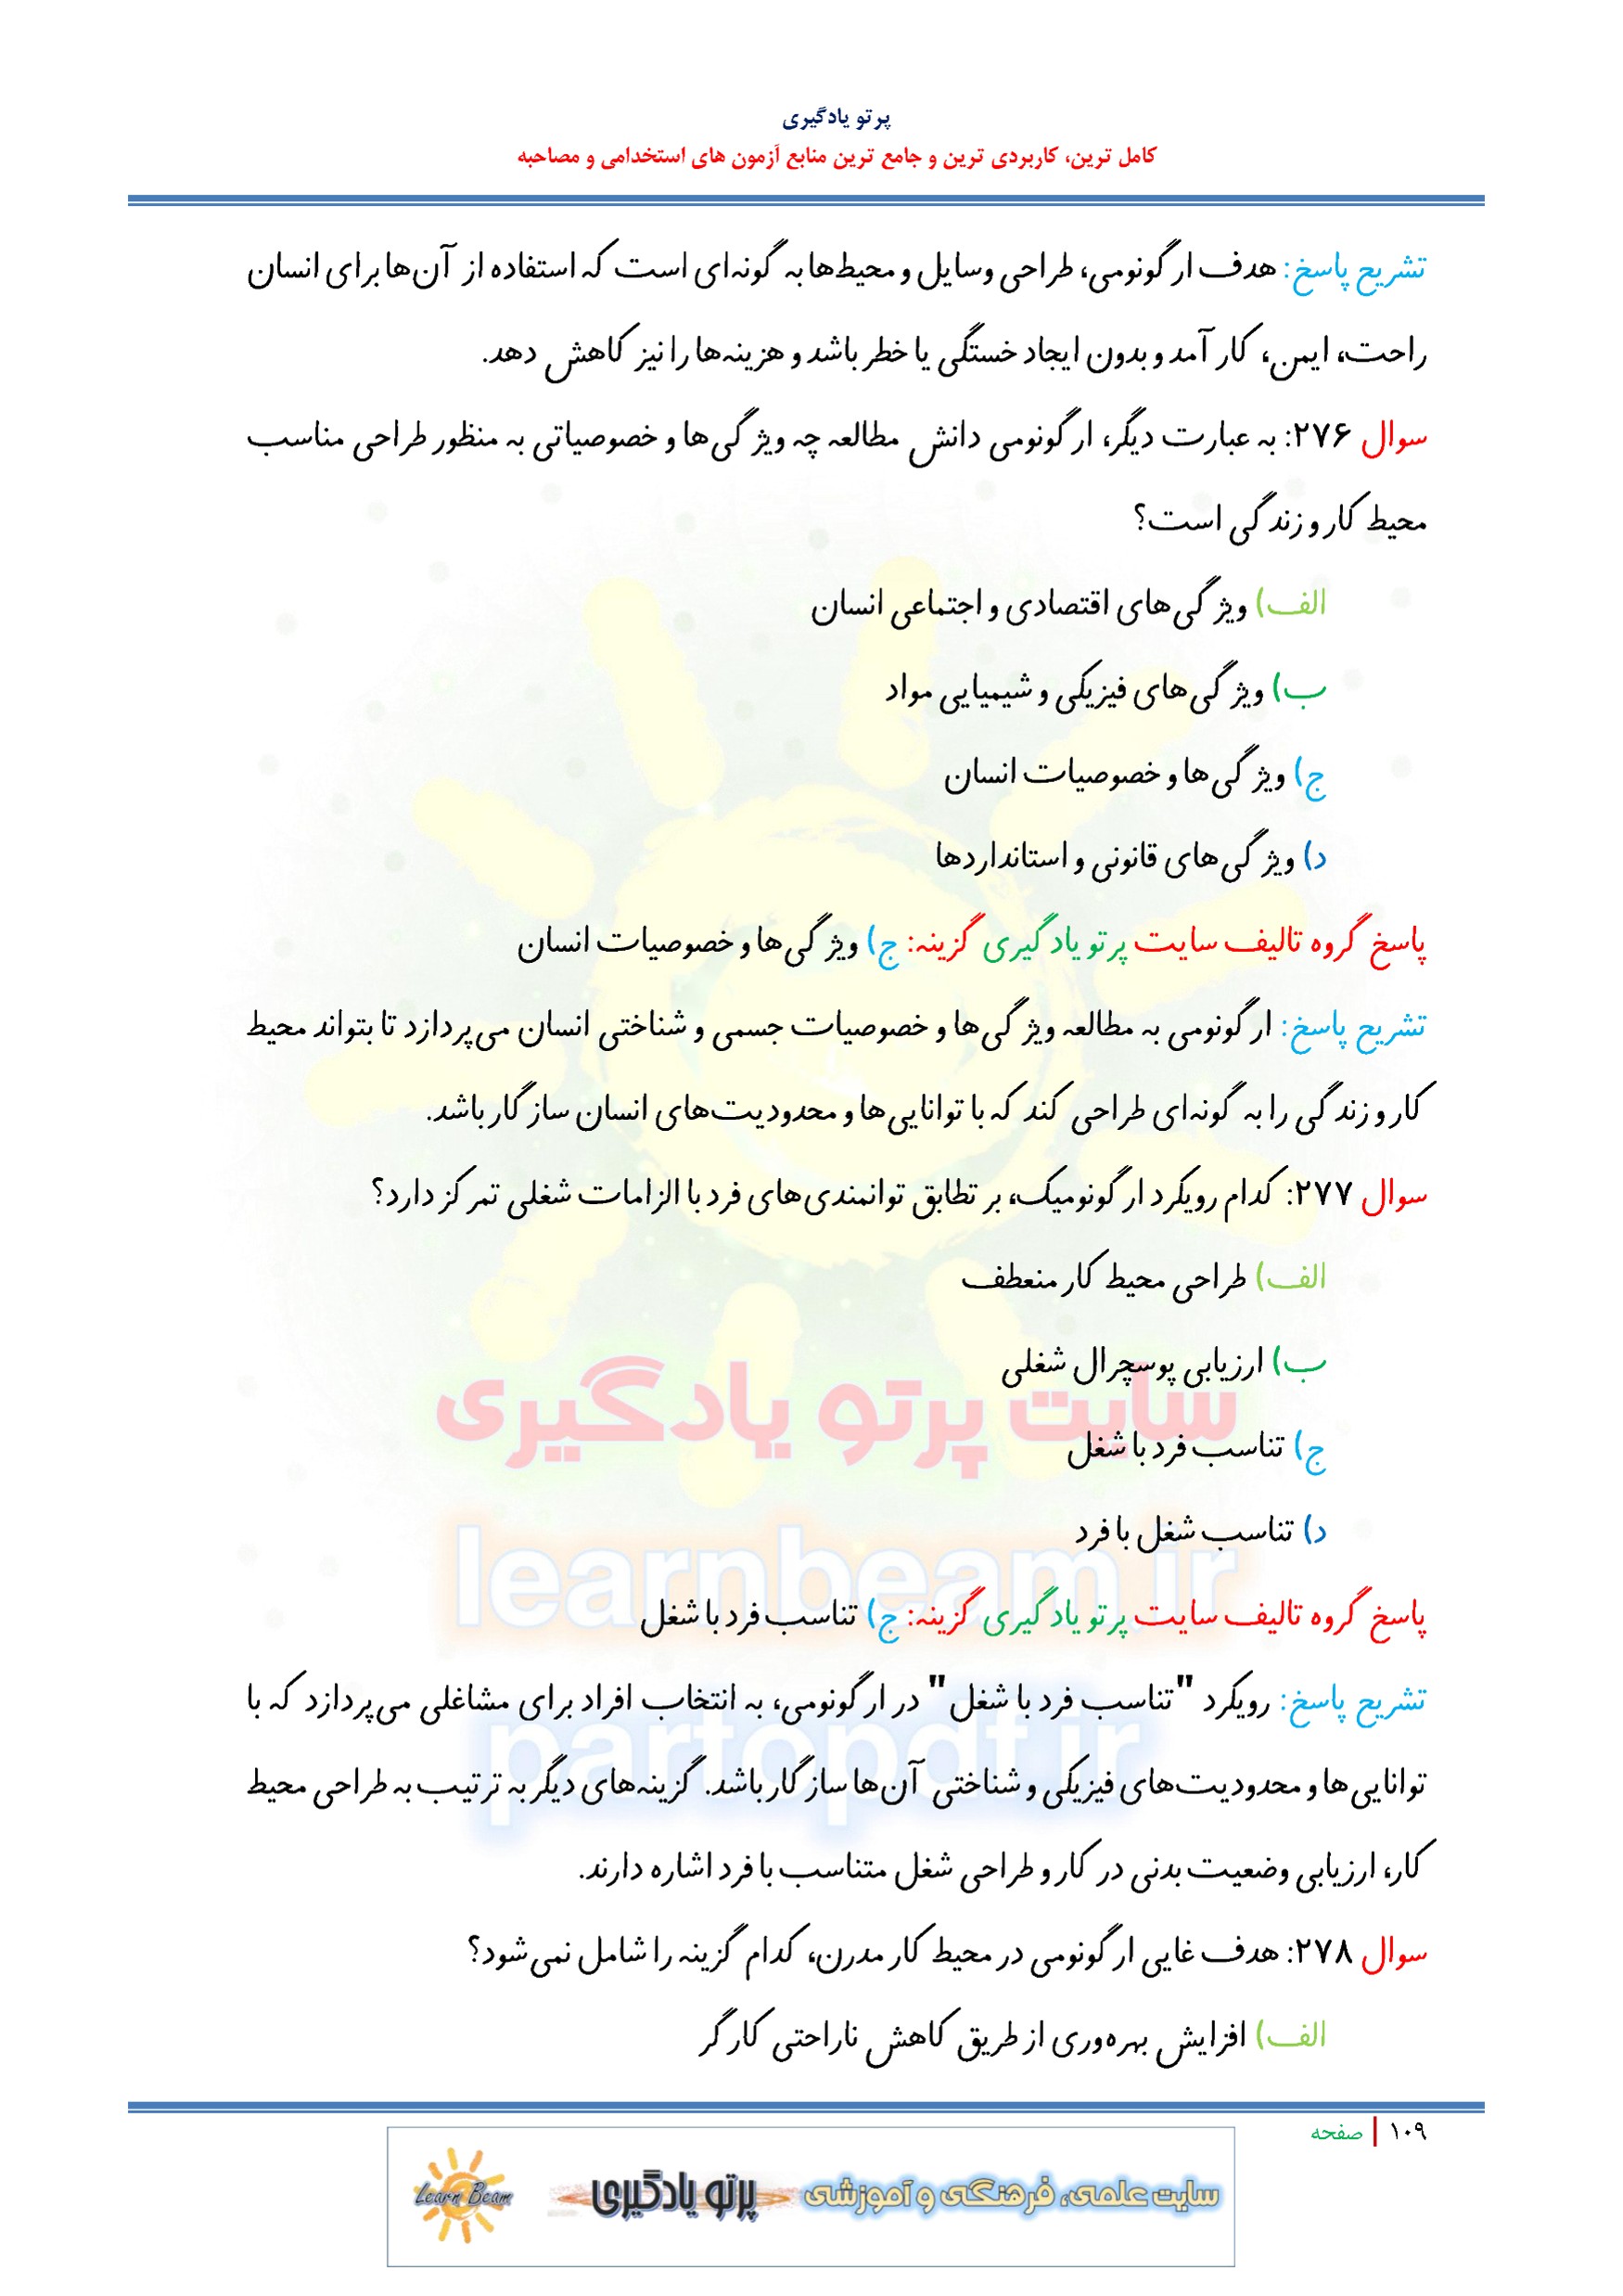 پرتو یادگیری
کامل ترین، کاربردی ترین و جامع ترین منابع آزمون های استخدامی و مصاحبه
تشریح پاسخ: هدف ارگونومی، طراحی وسایل و محیط‌ها به گونه‌ای است که استفاده از آن‌ها برای انسان
راحت، ایمن، کارآمد و بدون ایجاد خستگی یا خطر باشد و هزینه‌ها را نیز کاهش دهد.
سوال ۲۷۶: به عبارت دیگر، ارگونومی دانش مطالعه چه ویژگی‌ها و خصوصیاتی به منظور طراحی مناسب
محیط کار و زندگی است؟
الف) ویژگی‌های اقتصادی و اجتماعی انسان
ب) ویژگی‌های فیزیکی و شیمیایی مواد
ج) ویژگی‌ها و خصوصیات انسان
د) ویژگی‌های قانونی و استانداردها
پاسخ گروه تالیف سایت پرتو یادگیری گزینه: ج) ویژگی‌ها و خصوصیات انسان
تشریح پاسخ: ارگونومی به مطالعه ویژگی‌ها و خصوصیات جسمی و شناختی انسان می‌پردازد تا بتواند محیط
کار و زندگی را به گونه‌ای طراحی کند که با توانایی‌ها و محدودیت‌های انسان سازگار باشد.
سوال ۲۷۷: کدام رویکرد ارگونومیک، بر تطابق توانمندی‌های فرد با الزامات شغلی تمرکز دارد؟
الف) طراحی محیط کار منعطف
ب) ارزیابی پوسچرال شغلی
ج) تناسب فرد با شغل
د) تناسب شغل با فرد
پاسخ گروه تالیف سایت پرتو یادگیری گزینه: ج) تناسب فرد با شغل
تشریح پاسخ: رویکرد "تناسب فرد با شغل" در ارگونومی، به انتخاب افراد برای مشاغلی می‌پردازد که با
توانایی‌ها و محدودیت‌های فیزیکی و شناختی آن‌ها سازگار باشد. گزینه‌های دیگر به ترتیب به طراحی محیط
کار، ارزیابی وضعیت بدنی در کار و طراحی شغل متناسب با فرد اشاره دارند.
سوال ۲۷۸: هدف غایی ارگونومی در محیط کار مدرن، کدام گزینه را شامل نمی‌شود؟
الف) افزایش بهره‌وری از طریق کاهش ناراحتی کارگر
سایت پرتو یادگیری
learnbeam.ir
partopdf.ir
۱۰۹ | صفحه
سایت علمی، فرهنگی و آموزشی پرتو یادگیری Learn Beam